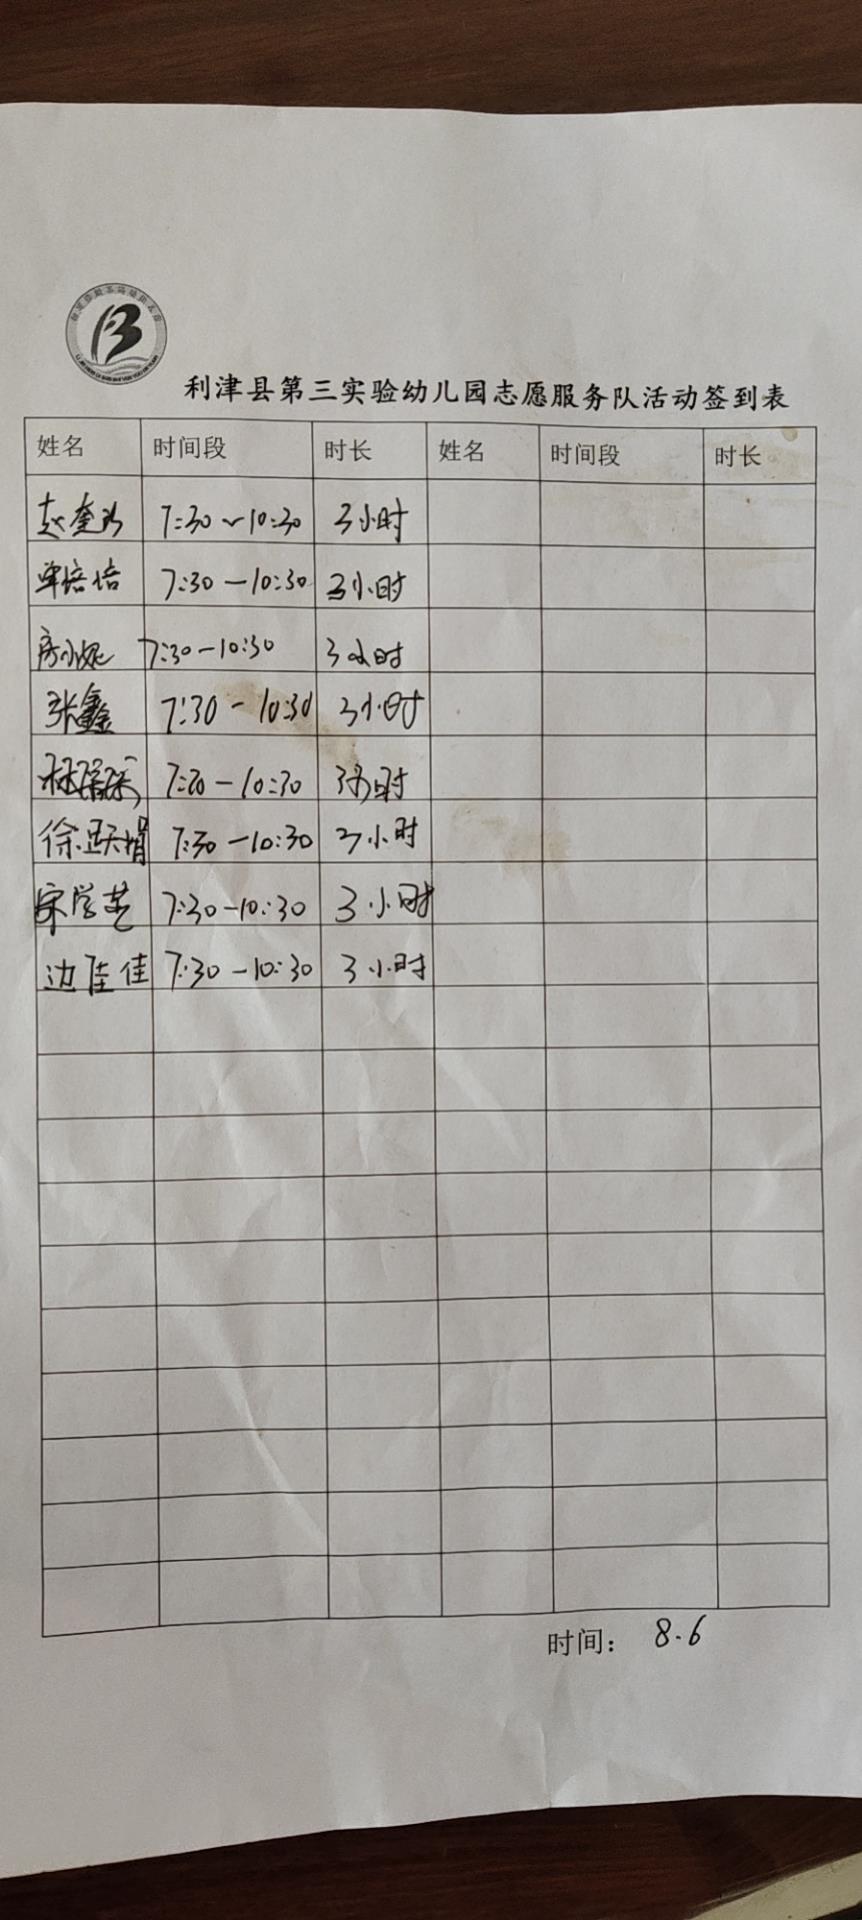 利津县第三实验幼儿园志愿服务队活动签到表
姓名 时间段 时长 姓名 时间段 时长
赵奎 7:30~10:30 3小时
单培培 7:30-10:30 3小时
房小妮 7:30-10:30 3小时
张鑫 7:30-10:30 3小时
林 7:30-10:30 3小时
徐跃娟 7:30-10:30 3小时
宋学芝 7:30-10:30 3小时
边佳佳 7:30-10:30 3小时
时间: 8.6